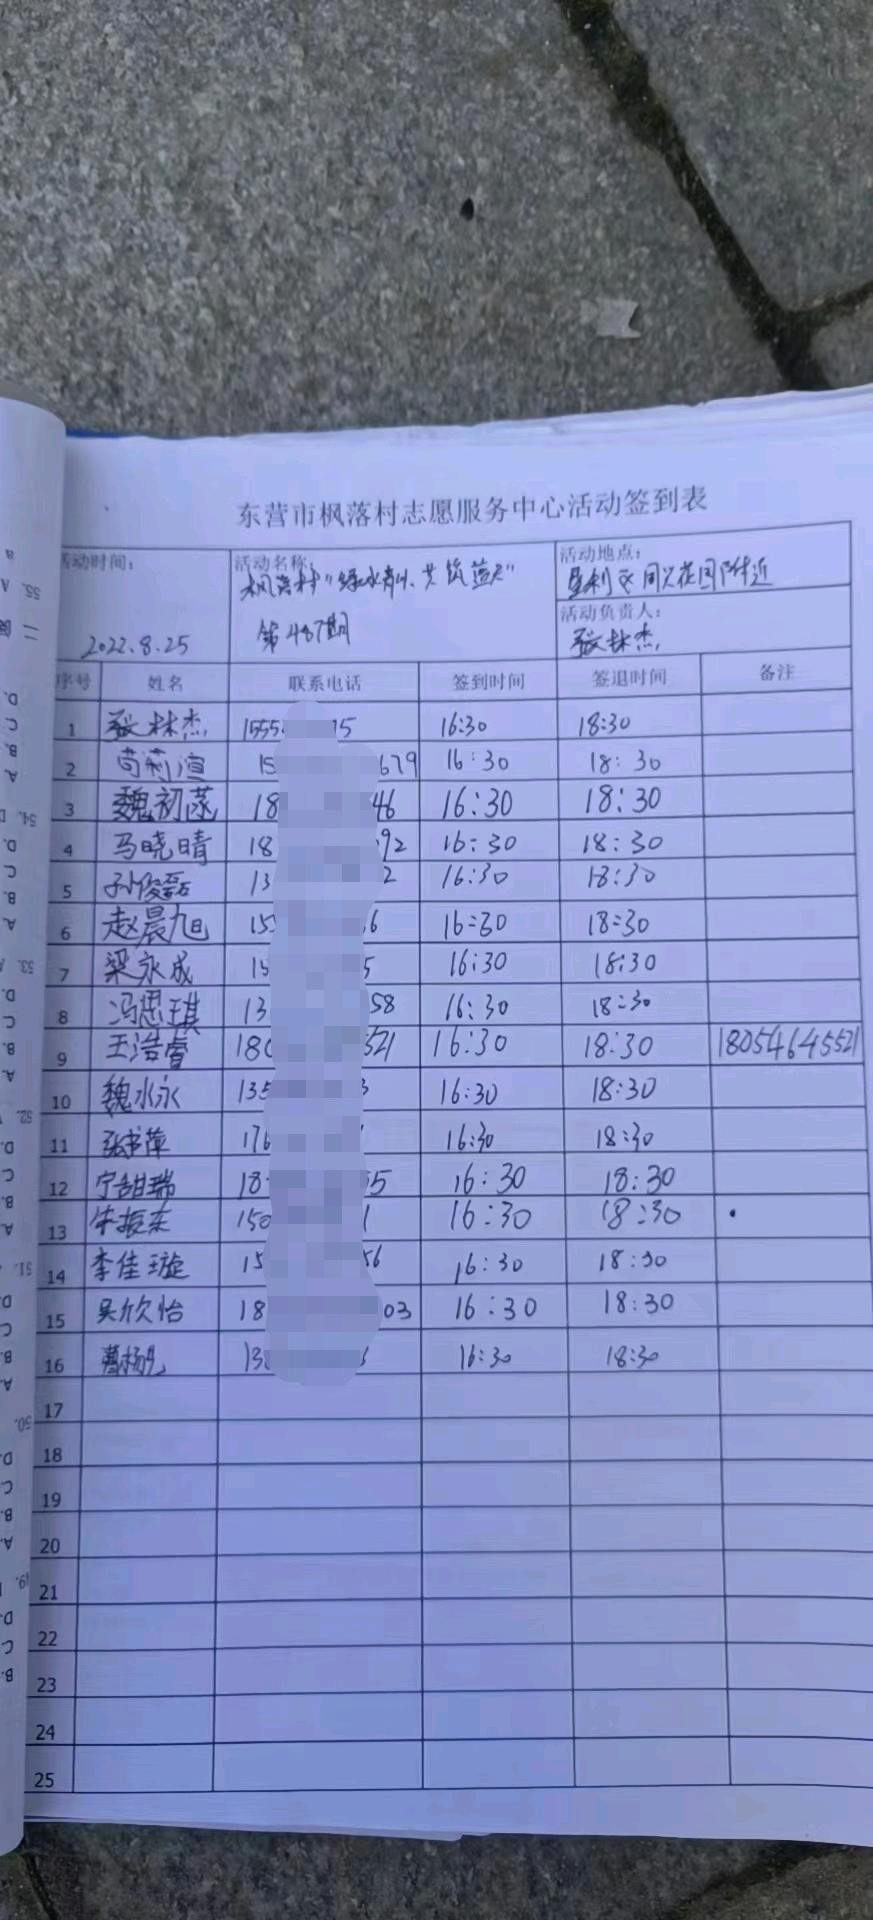 东营市枫落村志愿服务中心活动签到表
活动时间: 2022.8.25
活动名称: 枫落村"绿水青山、共筑蓝天" 第487期
活动地点: 垦利区同兴花园附近
活动负责人: 张林杰
序号 姓名 联系电话 签到时间 签退时间 备注
1 张林杰 1555 75 16:30 18:30
2 苟莉渲 15 679 16:30 18:30
3 魏初菡 18 46 16:30 18:30
4 马晓晴 18 92 16:30 18:30
5 孙俊磊 13 2 16:30 18:30
6 赵晨旭 155 6 16:30 18:30
7 梁永成 15 5 16:30 18:30
8 冯思琪 13 58 16:30 18:30
9 王浩睿 180 521 16:30 18:30 18054645521
10 魏水永 135 3 16:30 18:30
11 张书萍 176 16:30 18:30
12 宁甜瑞 18 55 16:30 18:30
13 牛振东 150 1 16:30 18:30
14 李佳璇 15 56 16:30 18:30
15 吴欣怡 18 03 16:30 18:30
16 13 16:30 18:30
17
18
19
20
21
22
23
24
25